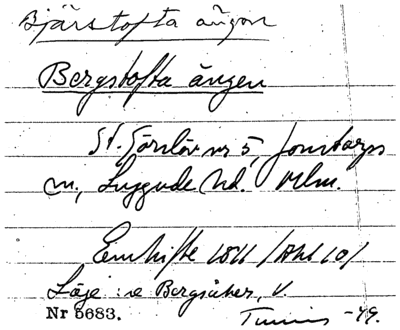 Bjärstofta ängen
Bergstofta ängen
St. Görslöv nr 5, Jonstorps
sn., Luggude hd. Mlm.
Enskifte 1811 /Akt 10/
Läge: se Bergsåker, V.
Nr 5683.
-49.